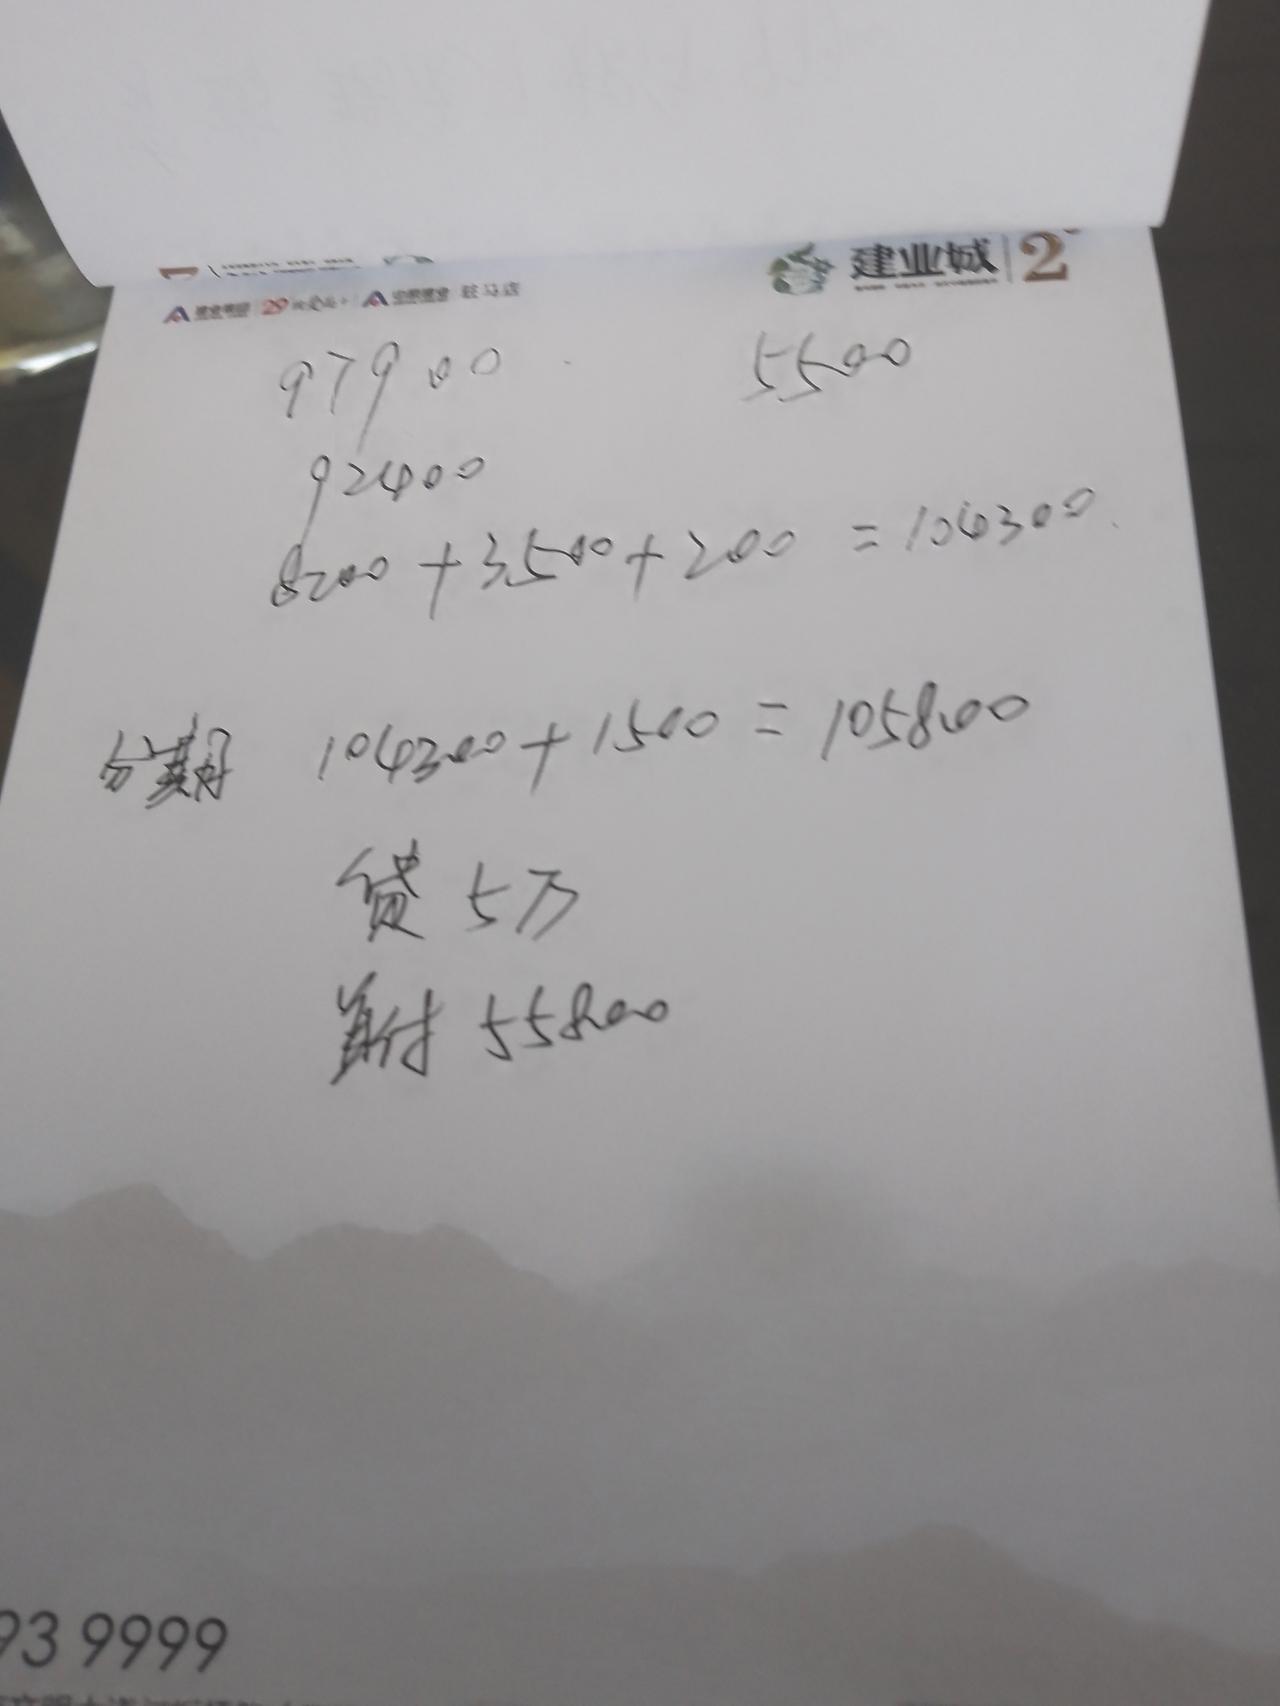 建业城 2
驻马店
97900 5500
92400
8200+3500+200=104300
分期 104300+1500=105800
贷 5万
首付 55800
93 9999